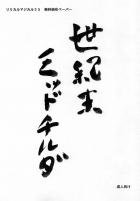 リリカルマジカル25 無料頒布ペーパー
世紀末
ミッドチルダ
成人向け